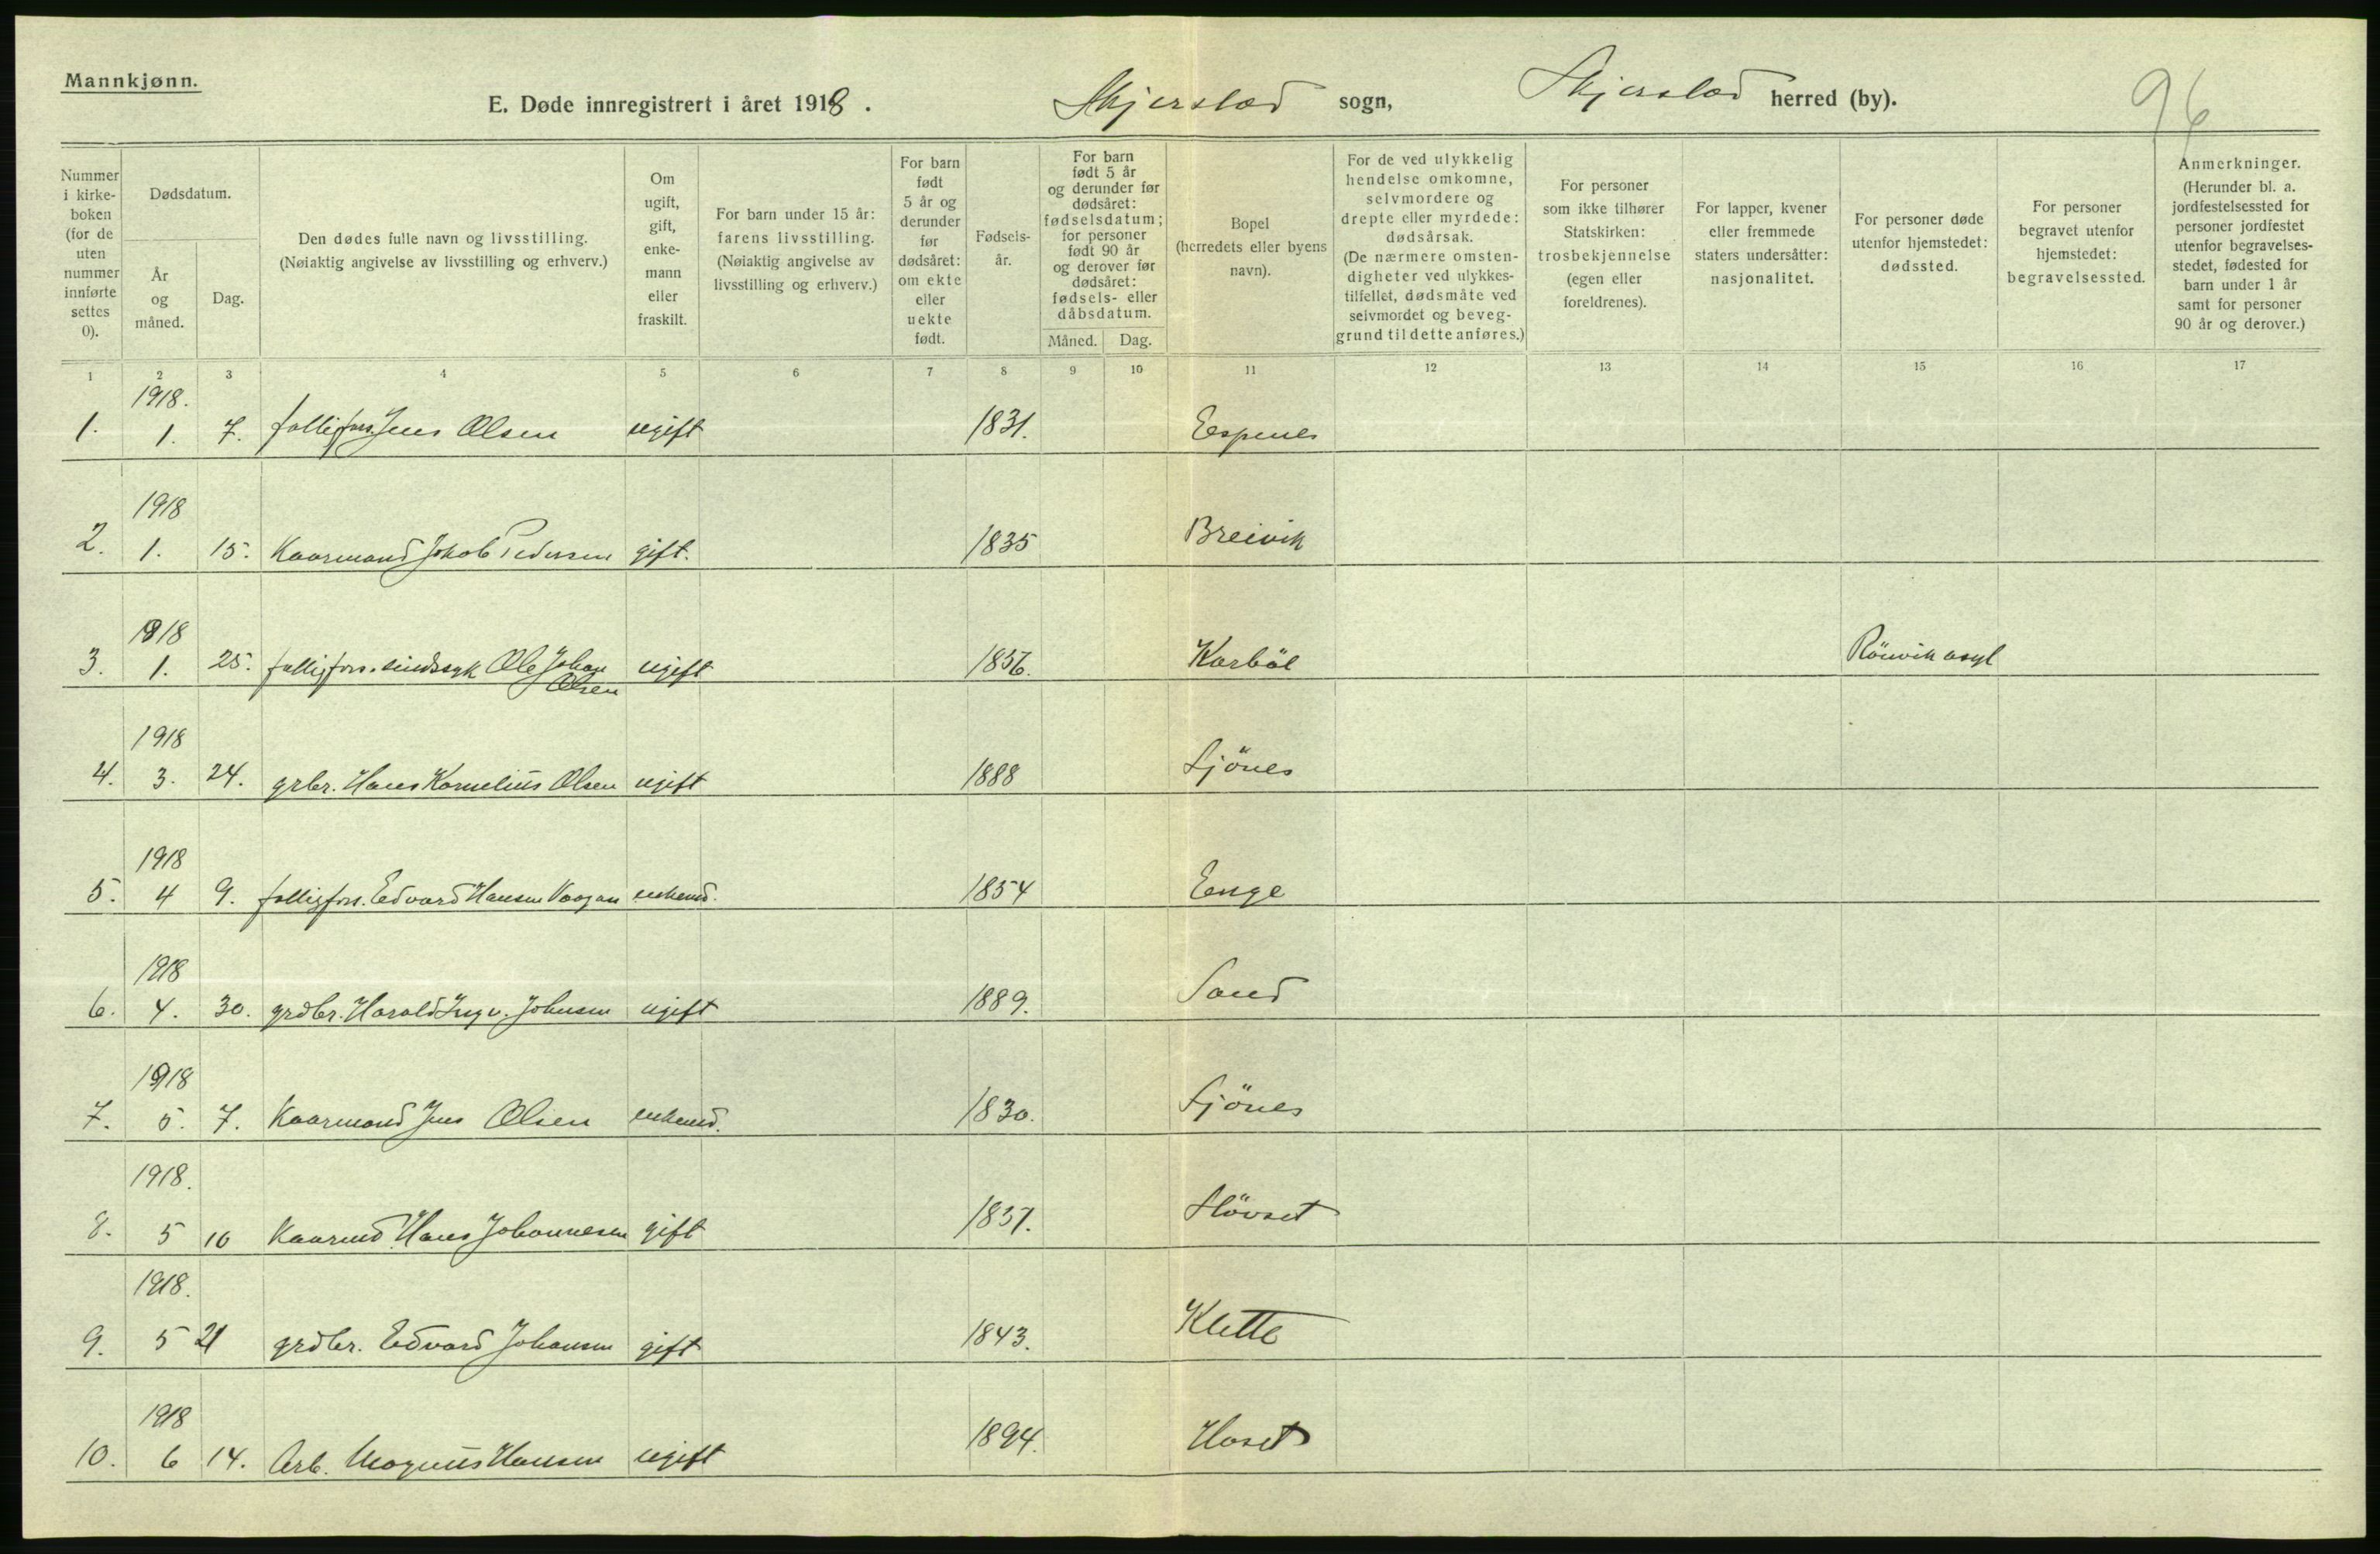 Mannkjønn.
E. Døde innregistrert i året 1918. Skjerstad sogn, Skjerstad herred (by). 96
Nummer i kirke- boken (for de uten nummer innførte settes 0).
Dødsdatum.
År og måned.
Dag.
Den dødes fulle navn og livsstilling.
(Nøiaktig angivelse av livsstilling og erhverv.)
Om ugift, gift, enke- mann eller fraskilt.
For barn under 15 år: farens livsstilling. (Nøiaktig angivelse av livsstilling og erhverv.)
For barn født 5 år og derunder før dødsåret: om ekte eller uekte født.
Fødsels- år.
For barn født 5 år og derunder før dødsåret: fødselsdatum; for personer født 90 år og derover før dødsåret: fødsels- eller dåbsdatum.
Måned. Dag.
Bopel (herredets eller byens navn).
For de ved ulykkelig hendelse omkomne, selvmordere og drepte eller myrdede: dødsårsak. (De nærmere omsten- digheter ved ulykkes- tilfellet, dødsmåte ved selvmordet og beveg- grund til dette anføres.)
For personer som ikke tilhører Statskirken: trosbekjennelse (egen eller foreldrenes).
For lapper, kvener eller fremmede staters undersåtter: nasjonalitet.
For personer døde utenfor hjemstedet: dødssted.
For personer begravet utenfor hjemstedet: begravelsessted.
Anmerkninger. (Herunder bl. a. jordfestelsessted for personer jordfestet utenfor begravelses- stedet, fødested for barn under 1 år samt for personer 90 år og derover.)
1 2 3 4 5 6 7 8 9 10 11 12 13 14 15 16 17
1918.
1. 1. 7. fattigfors. Jens Olsen ugift 1831. Espenes
1918
2. 1. 15. Kaarmand Jakob Pedersen gift. 1835 Breivik
1918
3. 1. 25. fattigfors. sindssyk Ole Johan Olsen ugift 1856. Karbøl Rönvik asyl
1918
4. 3. 24. grbr. Hans Kornelius Olsen ugift 1888 Ljönes
1918
5. 4 9. fattigfors. Edvard Hansen Vaagan enkemd. 1854 Enge
1918
6. 4. 30. grdbr. Harald Ingv. Johnsen ugift 1889. Sand
1918
7. 5. 7. Kaarmand Jens Olsen enkemd. 1830. Ljönes
1918.
8. 5 10 Kaarmd Hans Johannesen gift 1837. Störset
1918.
9. 5 21 grdbr. Edvard Johansen gift 1843. Klette
1918
10. 6 14. Arb. Magnus Hansen ugift 1894. Hoset